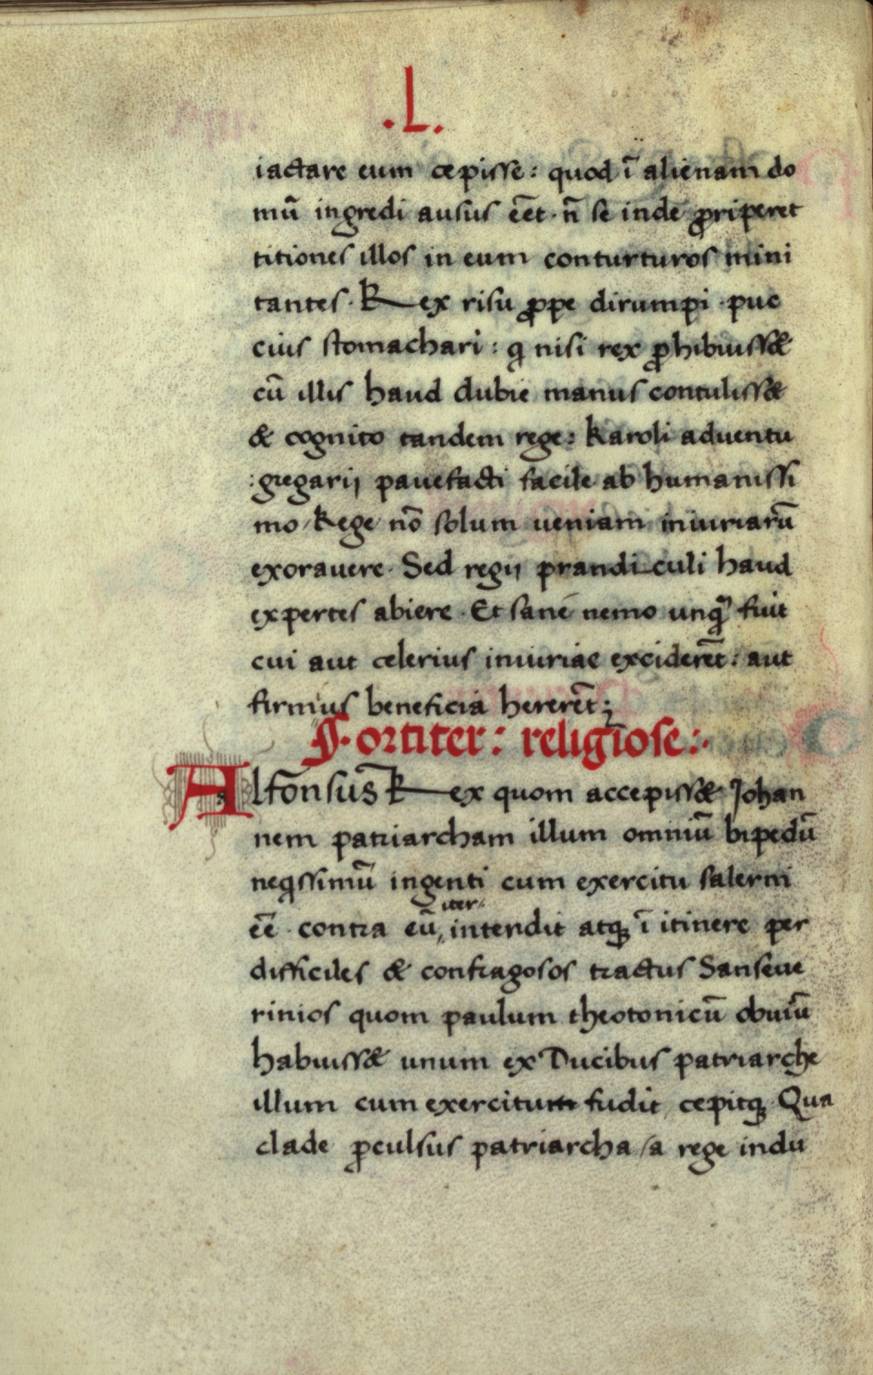 .L.
iactare eum cepisse: quod ī alienam do
mū ingredi ausus eēt· n̄ se inde ꝓriperet
titiones illos in eum conturturos mini
tantes· Rex risu ꝓpe dirumpi· puc
cius stomachari: q nisi rex ꝓhibuiss&
cū illis haud dubie manus contuliss&
& cognito tandem rege: karoli adventu
:gregarij pavefacti facile ab humanissi
mo Rege nō solum veniam iniuriarū
exoravere· Sed regij prandi culi haud
expertes abiere· Et sane nemo unq̄ fuit
cui aut celerius iniuriae exciderēt: aut
firmius beneficia hererēt;
Fortiter: religiose:·
Alfōnsus Rex quom accepiss& Johan
nem patriarcham illum omniū bipedū
neqssimū ingenti cum exercitu salerni
eē· contra eū iter intendit atqꝫ ī itinere per
difficiles & confragosos tractus Sanseve
rinios quom paulum theotonicū obuiū
habuiss& unum ex Ducibus patriarche
illum cum exercitu fudit cepitqꝫ Qua
clade ꝓculsus patriarcha /a rege indu